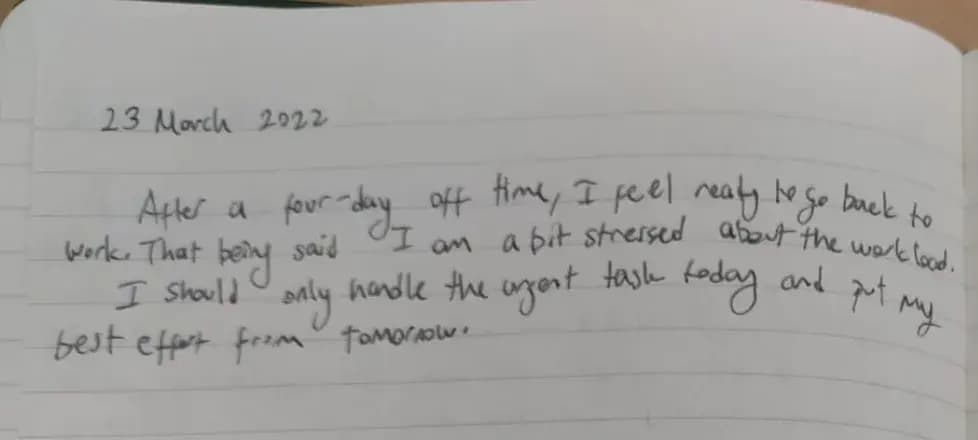 23 March 2022
After a four-day off time, I feel ready to go back to
work. That being said I am a bit stressed about the work load.
I should only handle the urgent task today and put my
best effort from tomorrow.